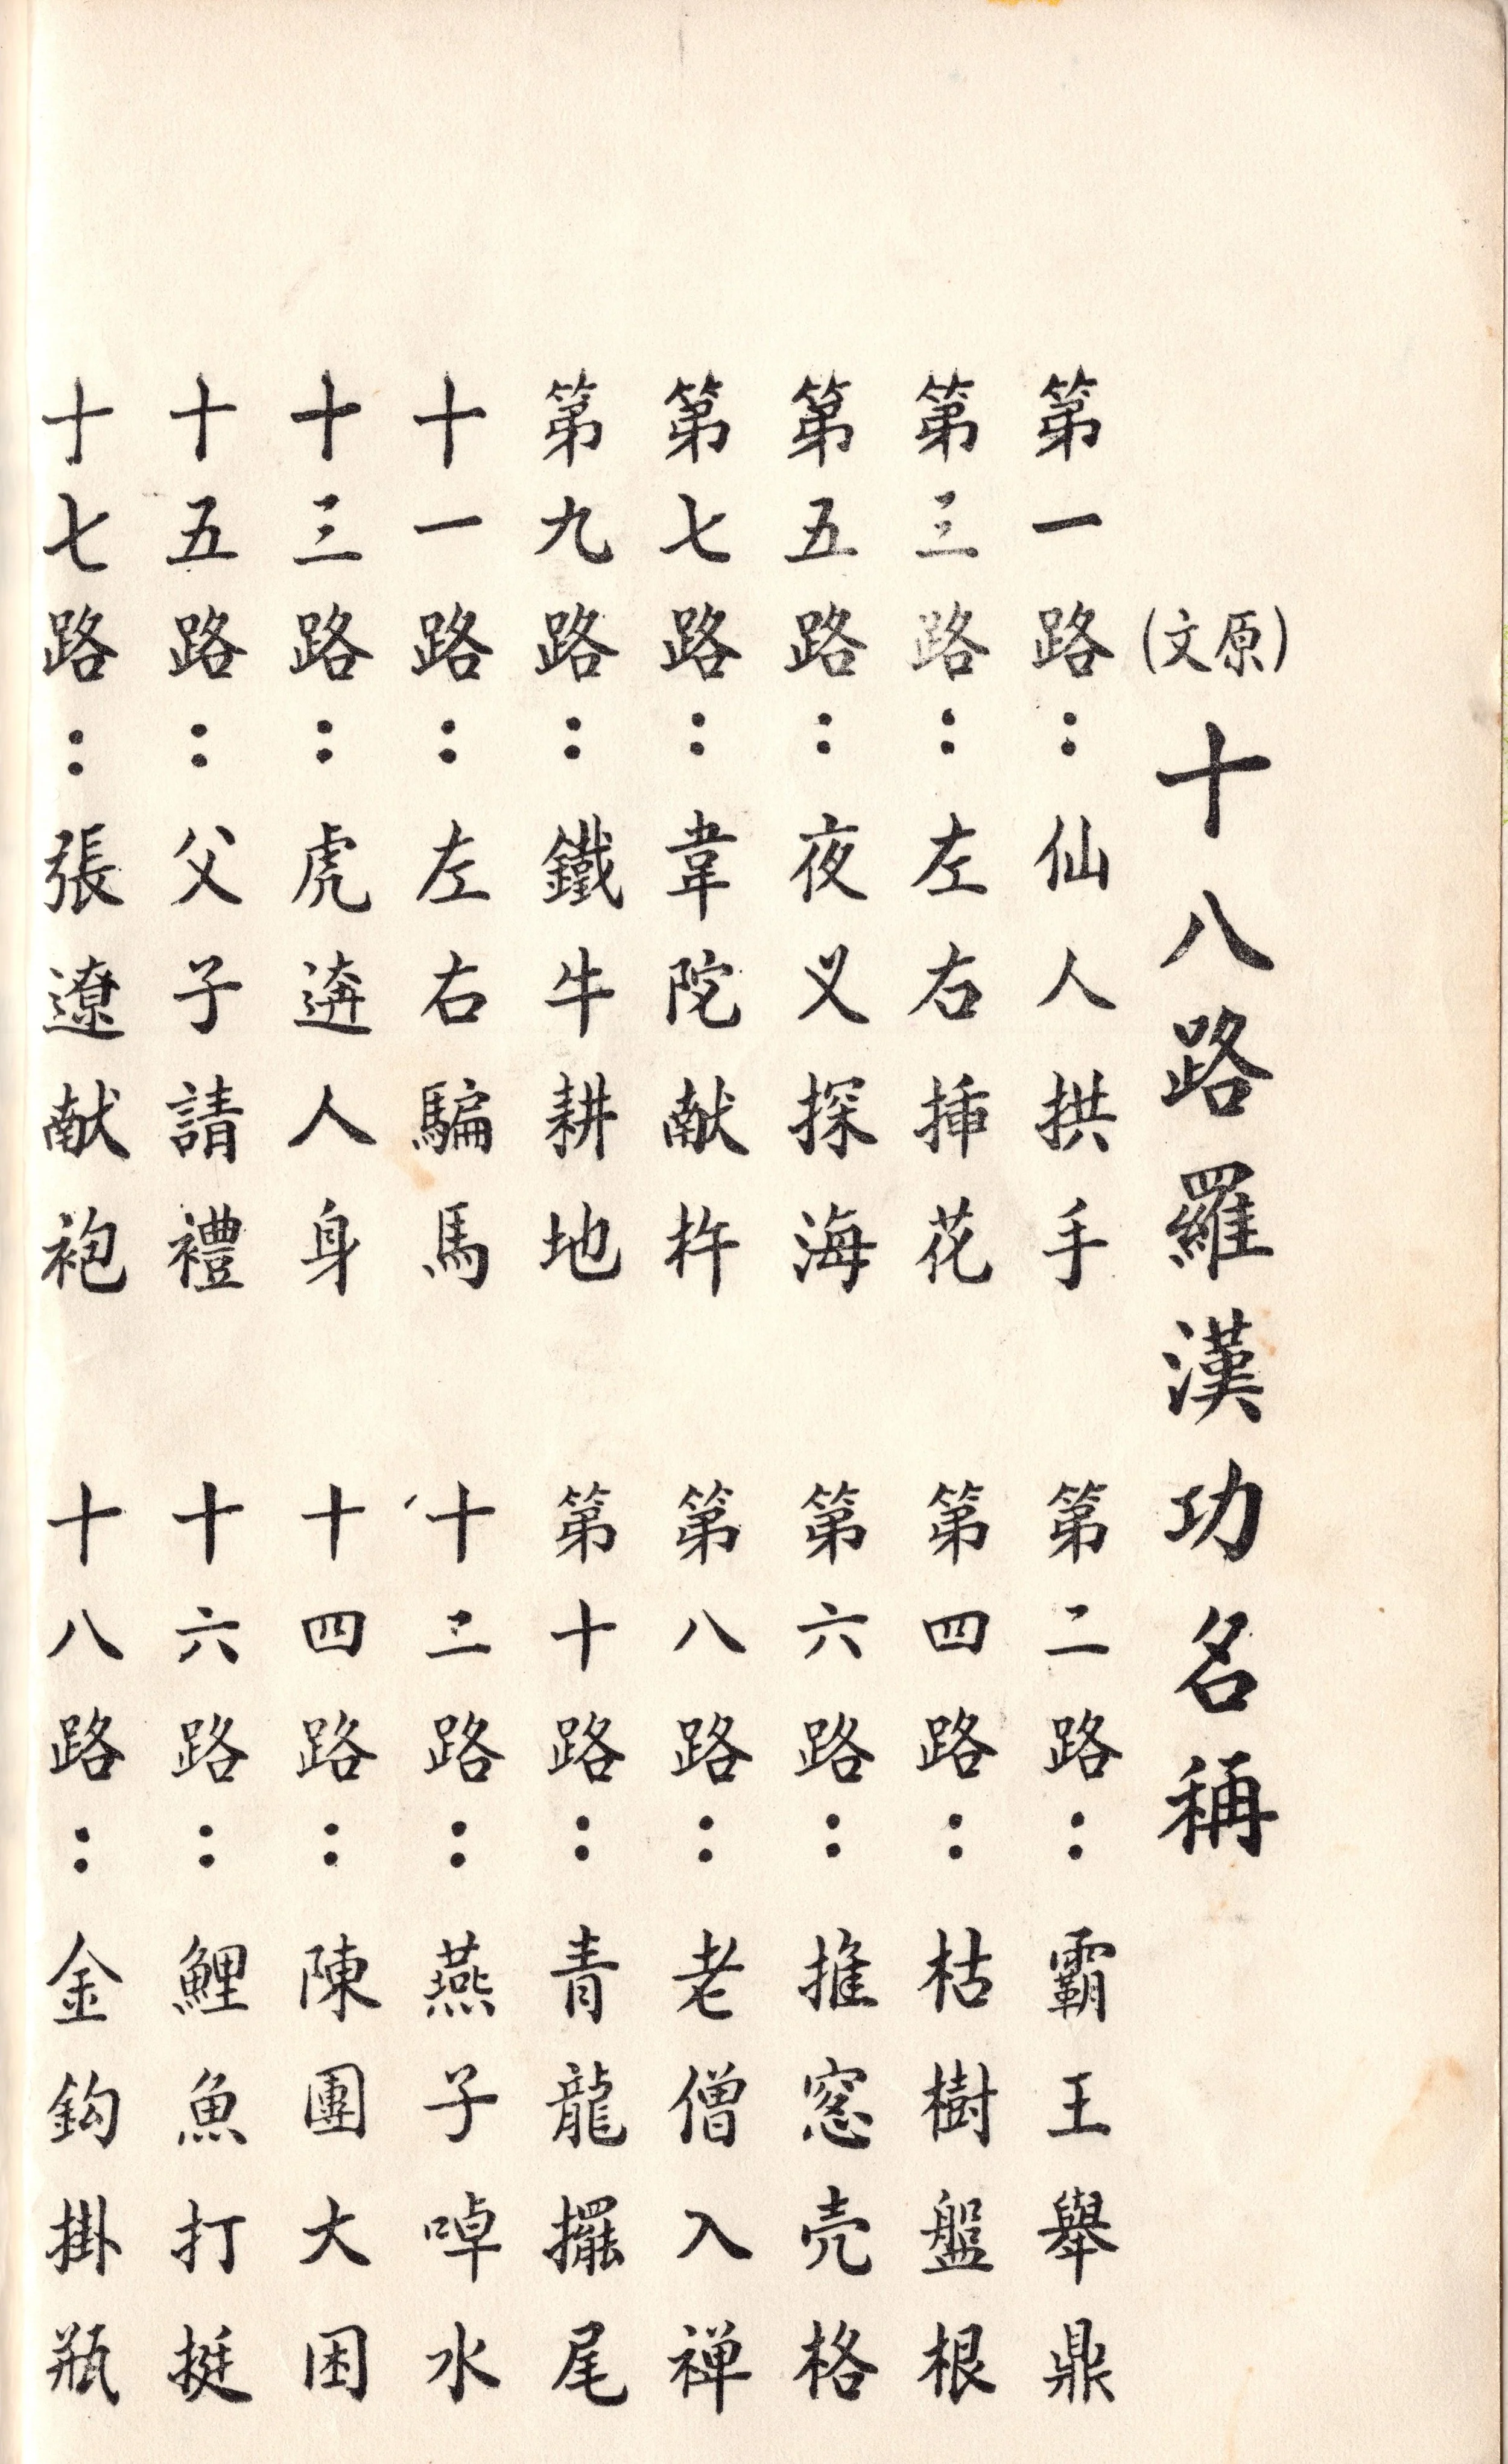 (原文)十八路羅漢功名稱
第一路：仙人拱手　第二路：霸王舉鼎
第三路：左右揷花　第四路：枯樹盤根
第五路：夜叉探海　第六路：推窓壳格
第七路：韋陀献杵　第八路：老僧入禅
第九路：鐵牛耕地　第十路：青龍擺尾
十一路：左右騙馬　十二路：燕子啅水
十三路：虎逩人身　十四路：陳團大困
十五路：父子請禮　十六路：鯉魚打挺
十七路：張遼献袍　十八路：金鈎掛瓶